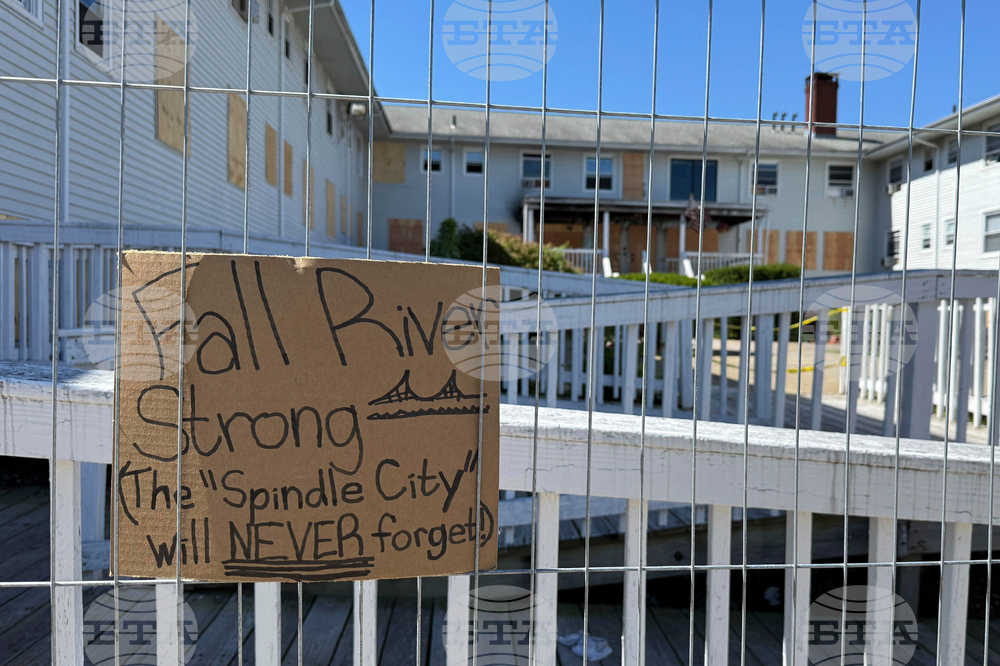 БТА
БТА
Fall River
Strong
(The "Spindle City"
will NEVER forget!)
БТА
БТА
БТА
БТА
БТА
БТА